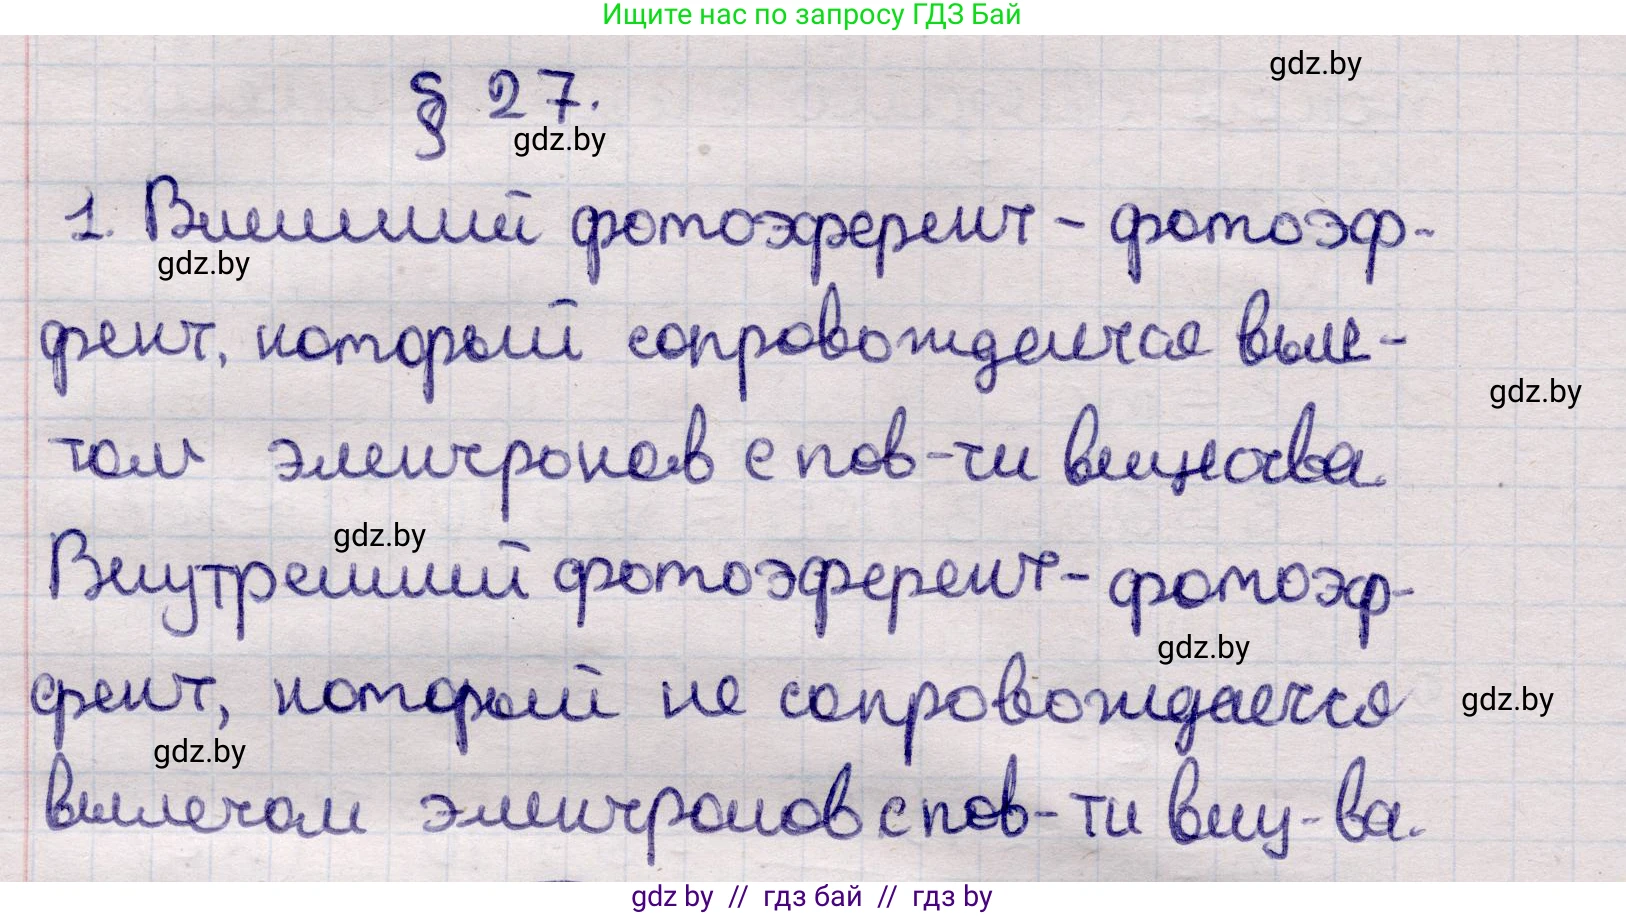 Ищите нас по запросу ГДЗ Бай
gdz.by
§ 27.
gdz.by
1. Внешний фотоэффект - фотоэф-
gdz.by
фект, который сопровождается выле-
gdz.by
том электронов с пов-ти вещества.
gdz.by
Внутренний фотоэффект - фотоэф-
gdz.by
фект, который не сопровождается
gdz.by
gdz.by
вылетом электронов с пов-ти вещ-ва.
gdz.by // гдз бай // гдз by